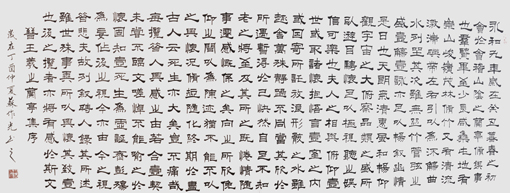 永和九年歲在癸丑暮春之初
會於會稽山陰之蘭亭修禊事
也群賢畢至少長咸集此地有
崇山峻嶺茂林修竹又有清流
激湍映帶左右引以為流觴曲
水列坐其次雖無絲竹管弦之
盛一觴一詠亦足以暢敘幽情
是日也天朗氣清惠風和暢仰
觀宇宙之大俯察品類之盛所
以遊目騁懷足以極視聽之娛
信可樂也夫人之相與俯仰一
世或取諸懷抱悟言一室之內
或因寄所託放浪形骸之外雖
趣舍萬殊靜躁不同當其欣於
所遇暫得於己快然自足不知
老之將至及其所之既倦情隨
事遷感慨係之矣向之所欣俯
仰之間以為陳跡猶不能不以
之興懷況修短隨化終期於盡
古人云死生亦大矣豈不痛哉
每攬昔人興感之由若合一契
未嘗不臨文嗟悼不能喻之於
懷固知一死生為虛誕齊彭殤
為妄作後之視今亦由今之視
昔悲夫故列敘時人錄其所述
雖世殊事異所以興懷其致一
也後之覽者亦將有感於斯文
晉王羲之蘭亭集序
歲在丁酉仲夏蘇作光